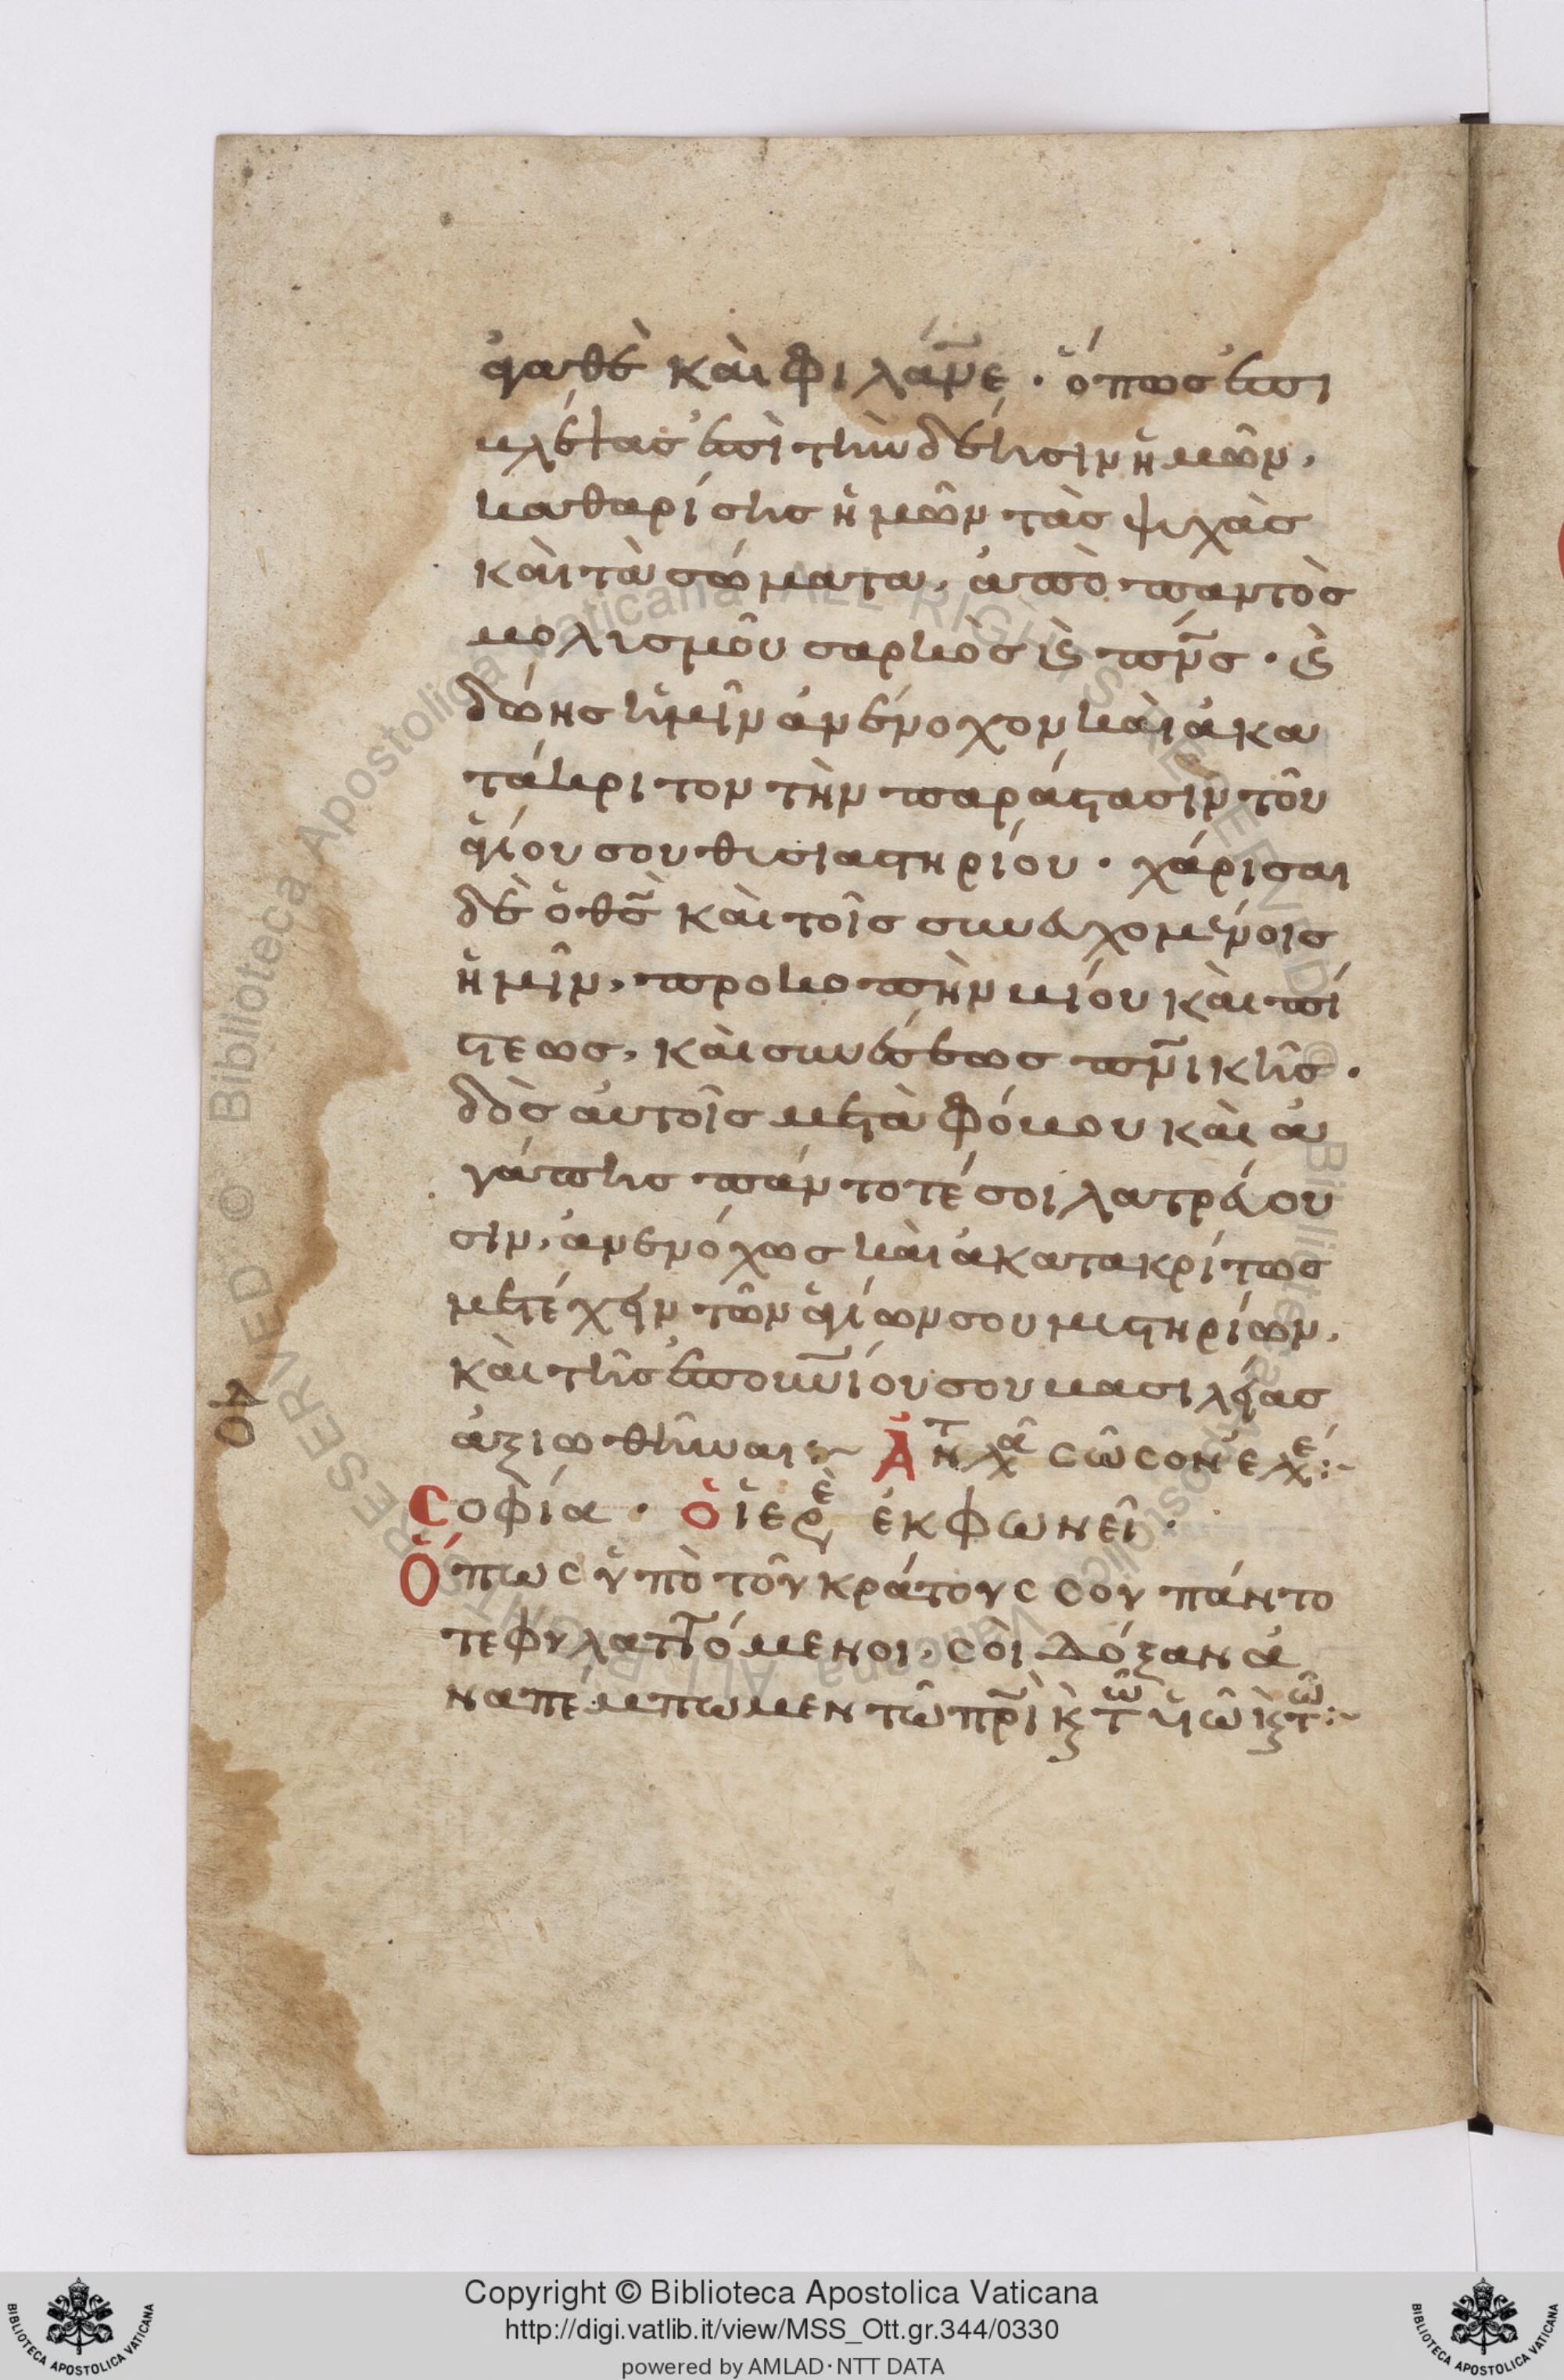 ἀγαθὲ καὶ φιλάνε · ὅπως ἐπι
βλέψας ἐπὶ τὴν δέησιν ἡμῶν,
καθαρίσης ἡμῶν τὰς ψυχὰς
καὶ τὰ σώματα, ἀπὸ παντὸς
μολυσμοῦ σαρκὸς κ(αὶ) πνς · κ(αὶ)
δώης ἡμῖν ἀνένοχον καὶ ἀκα
τάκριτον τὴν παράστασιν τοῦ
ἁγίου σου θυσιαστηρίου · χάρισαι
δὲ ὁ θς καὶ τοῖς συνευχομένοις
ἡμῖν, προκοπὴν βίου καὶ πί
στεως, καὶ συνέσεως πνικῆς ·
δὸς αὐτοῖς μετὰ φόβου καὶ ἀ
γάπης πάντοτέ σοι λατρεύου
σιν, ἀνενόχως καὶ ἀκατακρίτως
μετέχειν τῶν ἁγίων σου μυστηρίων,
καὶ τῆς ἐπουνίου σου βασιλείας
ἀξιωθῆναι :~ Ἀντ λα σῶσον ἐλε :~
Σοφία · ὁ ἱερὲ ἐκφωνεῖ ·
Ὅπως ὑπὸ τοῦ κράτους σου πάντο
τε φυλαττόμενοι, σοὶ δόξαν ἀ
ναπέμπωμεν τῶ πρὶ κ(αὶ) τῶ υἱῶ κ(αὶ) τῶ :~
Copyright © Biblioteca Apostolica Vaticana
http://digi.vatlib.it/view/MSS_Ott.gr.344/0330
powered by AMLAD·NTT DATA
BIBLIOTECA APOSTOLICA VATICANA
BIBLIOTECA APOSTOLICA VATICANA